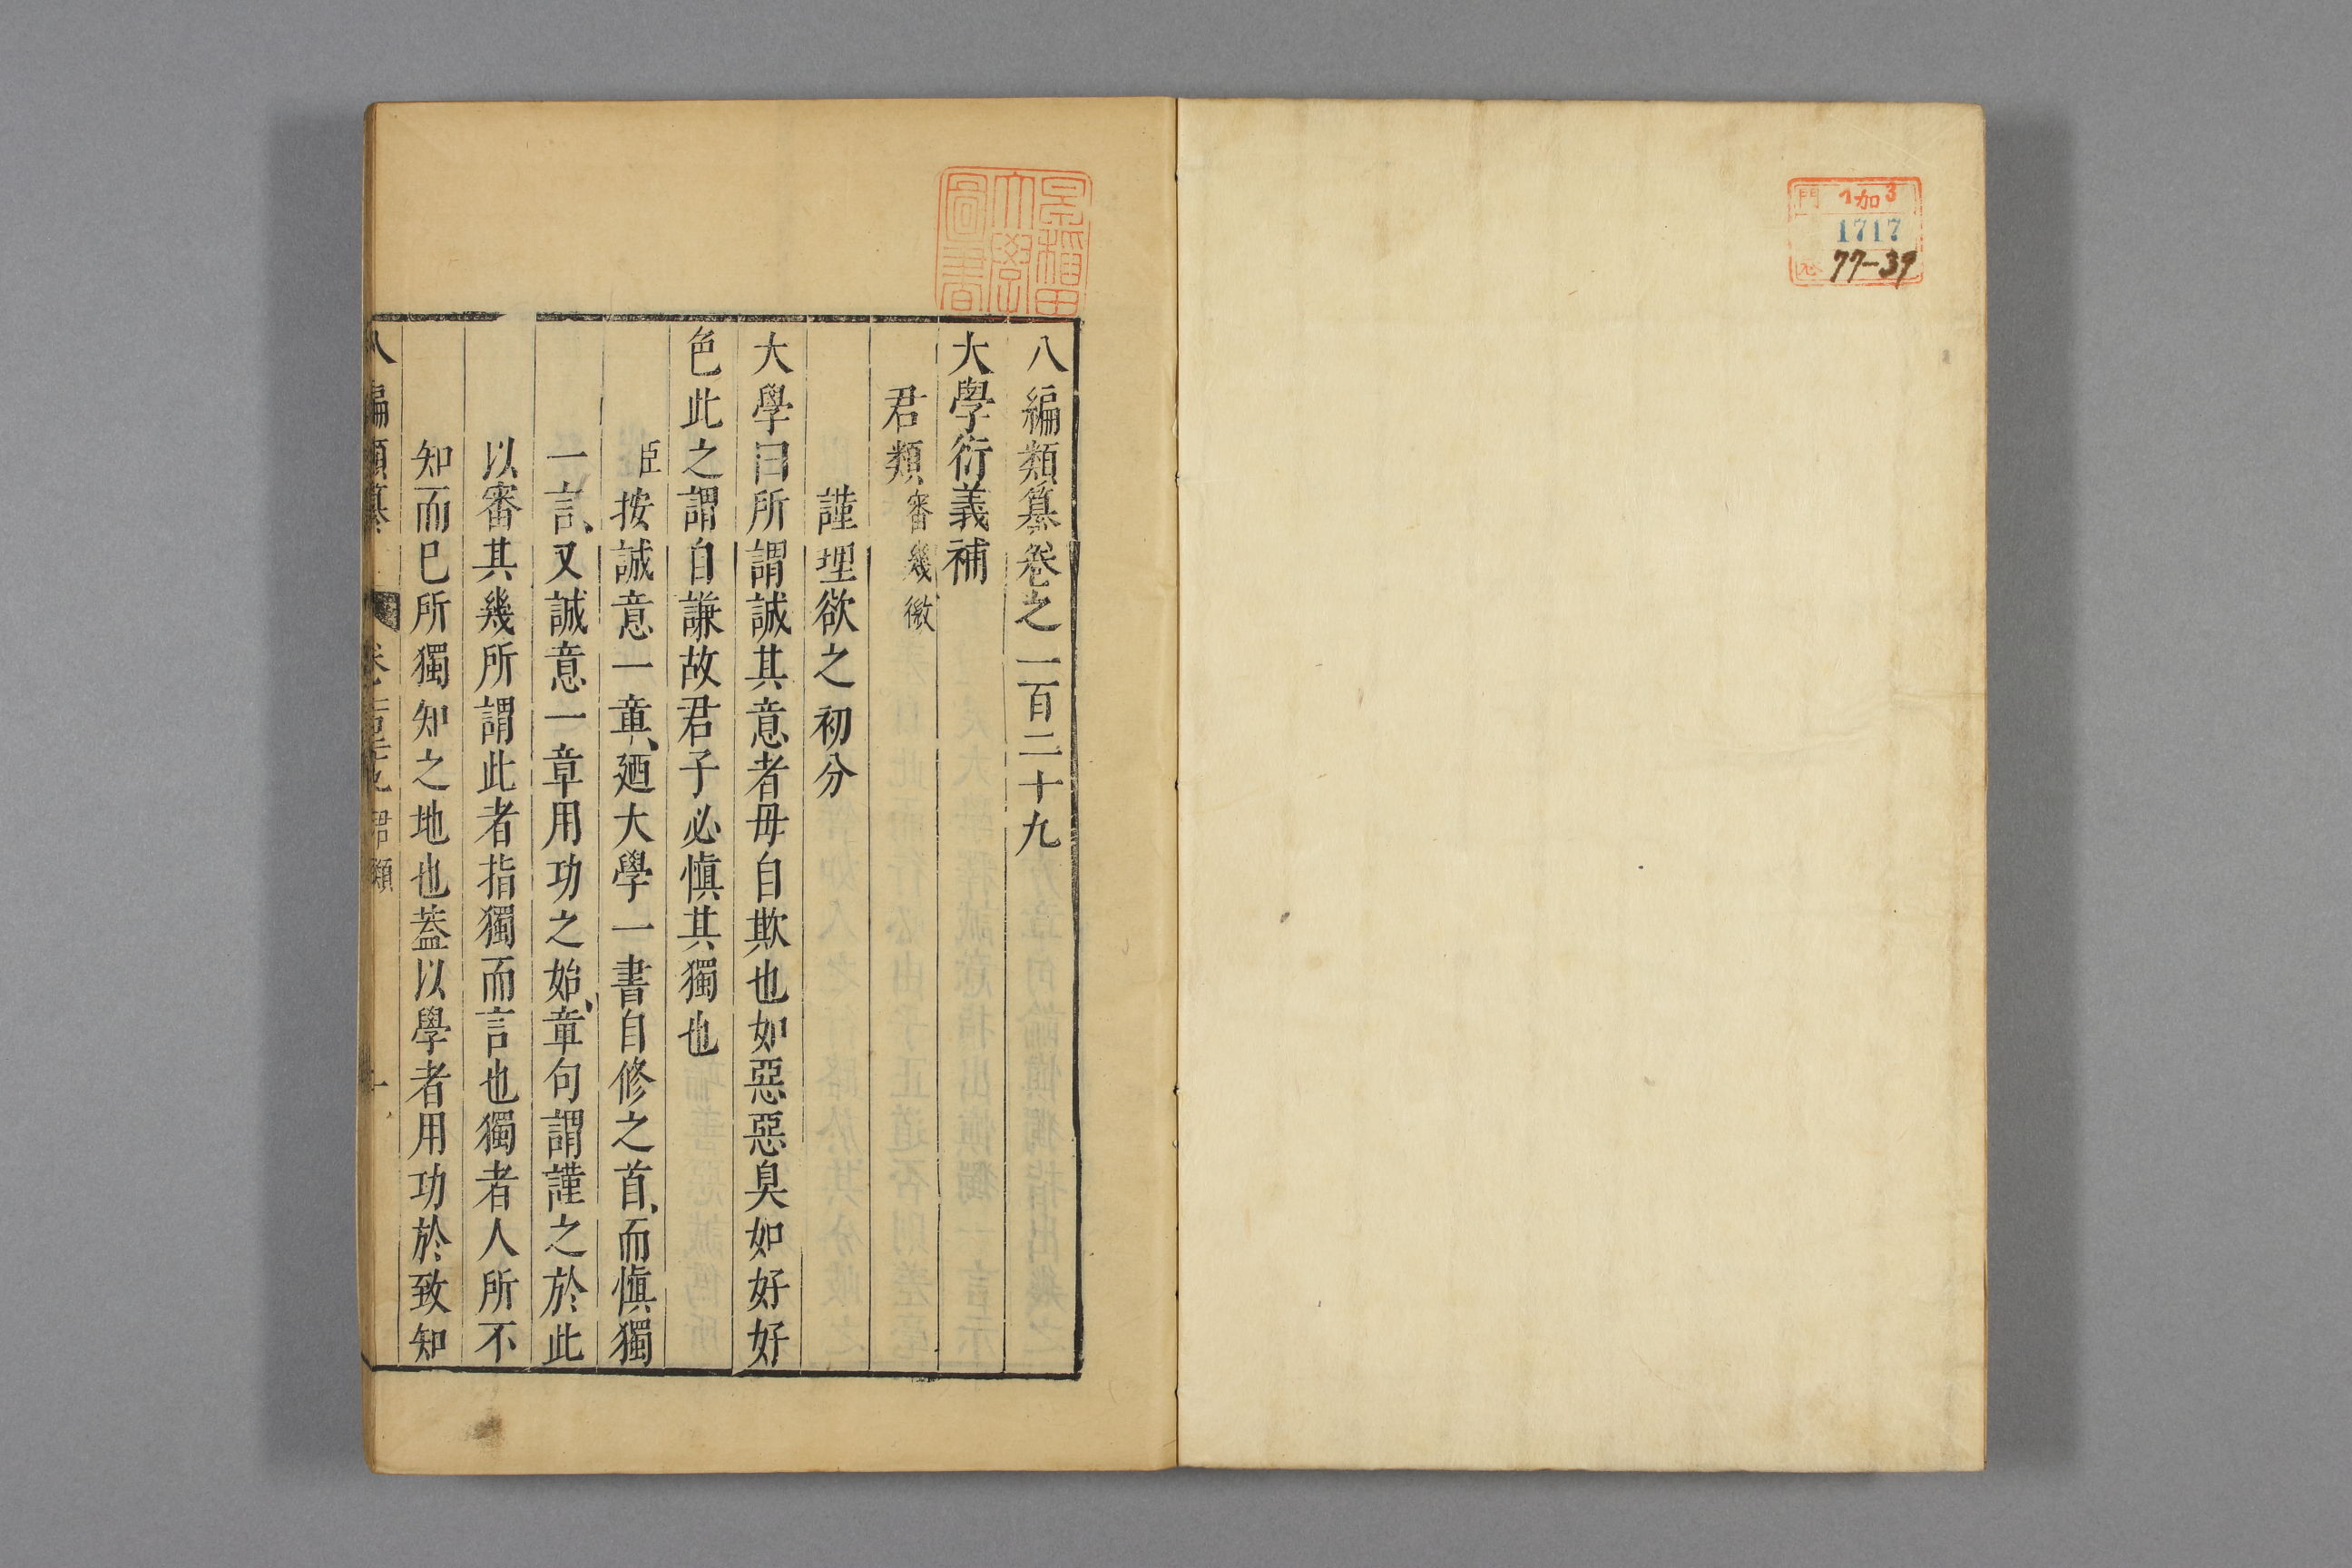 門 イ加3
1717
77-39
早稲田
大學
圖書
八編類纂卷之一百二十九
大學衍義補
君類 審幾微
謹理欲之初分
大學曰所謂誠其意者毋自欺也如惡惡臭如好好
色此之謂自謙故君子必慎其獨也
臣按誠意一章、廼大學一書自修之首、而慎獨
一言、又誠意一章用功之始、章句謂謹之於此
以審其幾所謂此者指獨而言也獨者人所不
知而巳所獨知之地也葢以學者用功於致知
八編類纂
君類